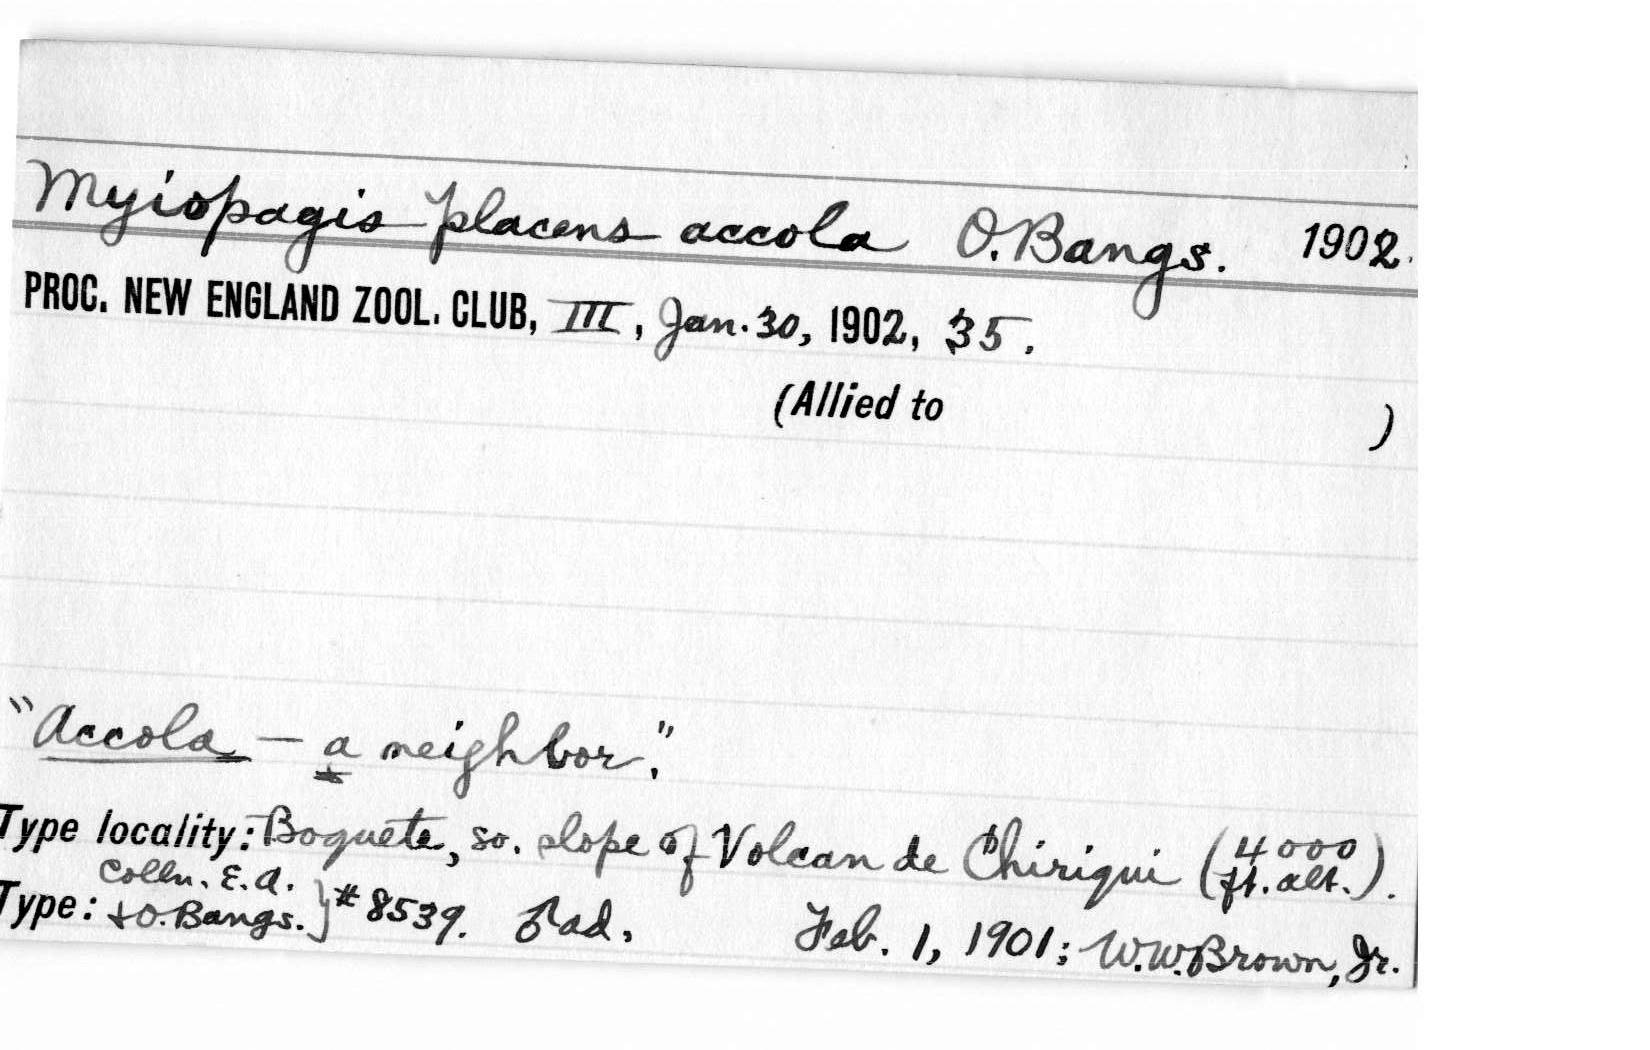 Myiopagis placens accola O. Bangs. 1902.
PROC. NEW ENGLAND ZOOL. CLUB, III, Jan. 30, 1902, 35.
(Allied to )
"Accola — a neighbor."
Type locality: Boquete, so. slope of Volcan de Chiriqui (4000 ft. alt.).
Type: Colln. E.A. + O. Bangs. } # 8539. ♂ ad. Feb. 1, 1901; W.W. Brown, Jr.